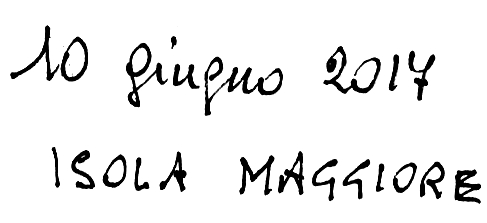 10 giugno 2017
ISOLA MAGGIORE